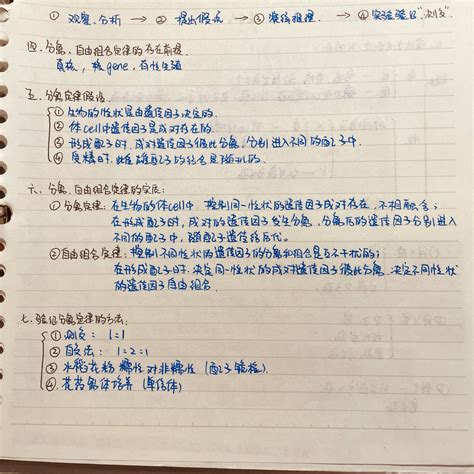 ① 观察、分析 → ② 提出假说 → ③ 演绎推理 → ④ 实验验证“测交”
四、分离、自由组合定律的存在前提
真核,核gene,有性生殖
五、分离定律假说:
① 生物的性状是由遗传因子决定的.
② 体cell中遗传因子是成对存在的.
③ 形成配子时,成对遗传因子彼此分离,分别进入不同的配子中.
④ 受精时,雌雄配子的结合是随机的.
六、分离、自由组合定律的实质:
① 分离定律:在生物的体cell中,控制同一性状的遗传因子成对存在,不相融合;
在形成配子时,成对的遗传因子发生分离,分离后的遗传因子分别进入
不同的配子中,随配子遗传给后代.
② 自由组合定律:控制不同性状的遗传因子的分离和组合是互不干扰的;
在形成配子时,决定同一性状的成对遗传因子彼此分离,决定不同性状
的遗传因子自由组合.
七、验证分离定律的方法:
① 测交:1=1
② 自交法:1=2=1
③ 水稻花粉 糯性对非糯性(配子镜检).
④ 花药离体培养(单倍体)